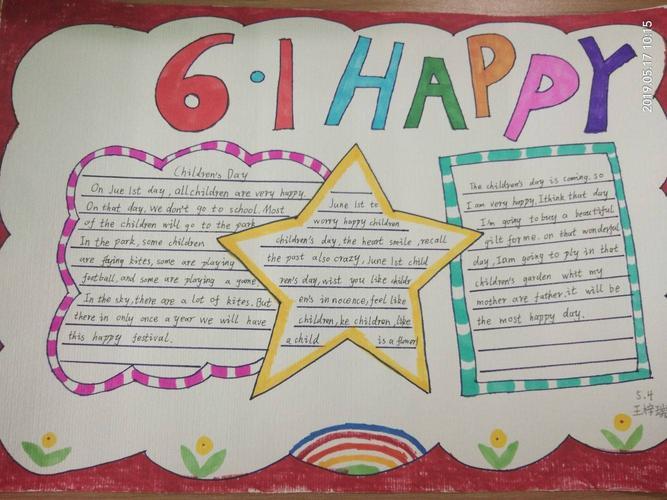 6·1 HAPPY
2019.05.17 10:15
Children's Day
On Jue 1st day, all children are very happy.
On that day, we don't go to school. Most
of the children will go to the park
In the park, some children
are faying kites, some are playing
football, and some are playing a game
In the sky, there are a lot of kites. But
there in only once a year we will have
this happy festival.
June 1st to
worry happy children
children's day, the heart smile, recall
the past also crazy, June 1st child
ren's day, wist you like childr
en's in nocence, feel like
children, ke children, like
a child is a flower
The children's day is coming. so
I am very happy. Ithink that day
I'm going to buy a beautiful
gilt for me. on that wonderful
day, I am going to ply in that
children's garden whit my
mother are father, it will be
the most happy day.
5.4
王梓瑞